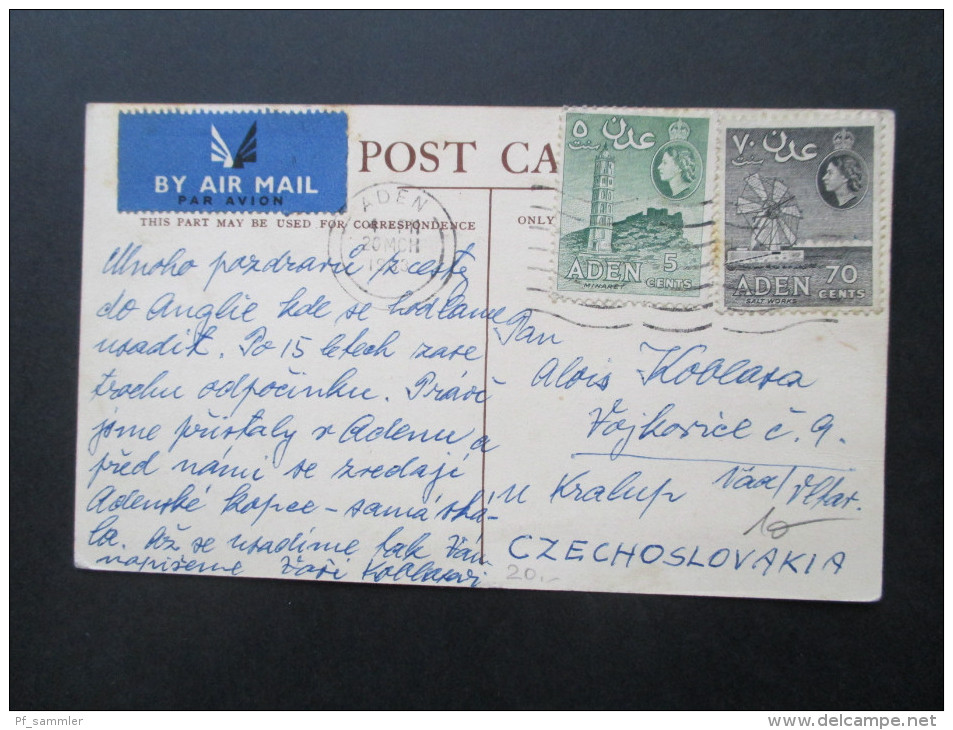 BY AIR MAIL
PAR AVION
POST CA
THIS PART MAY BE USED FOR CORRESPONDENCE
ONLY
ADEN
٥ عدن
سنت
ADEN 5 CENTS
MINARET
٧٠ عدن
سنت
ADEN 70 CENTS
SALT WORKS
Mnoho pozdravů z cesty
do Anglie kde se hodláme
usadit. Po 15 letech zase
trochu odpočinku. Právě
jsme přistály v Adenu a
před námi se zvedají
Adenské kopce – samá ská-
la. Až se usadíme tak Vám
napíšeme Vaši Koblasovi
Pan
Alois Koblasa
Vojkovice č. 9.
u Kralup Nad/Vltav.
CZECHOSLOVAKIA
20.-
10
Pf_sammler
delcampe.net